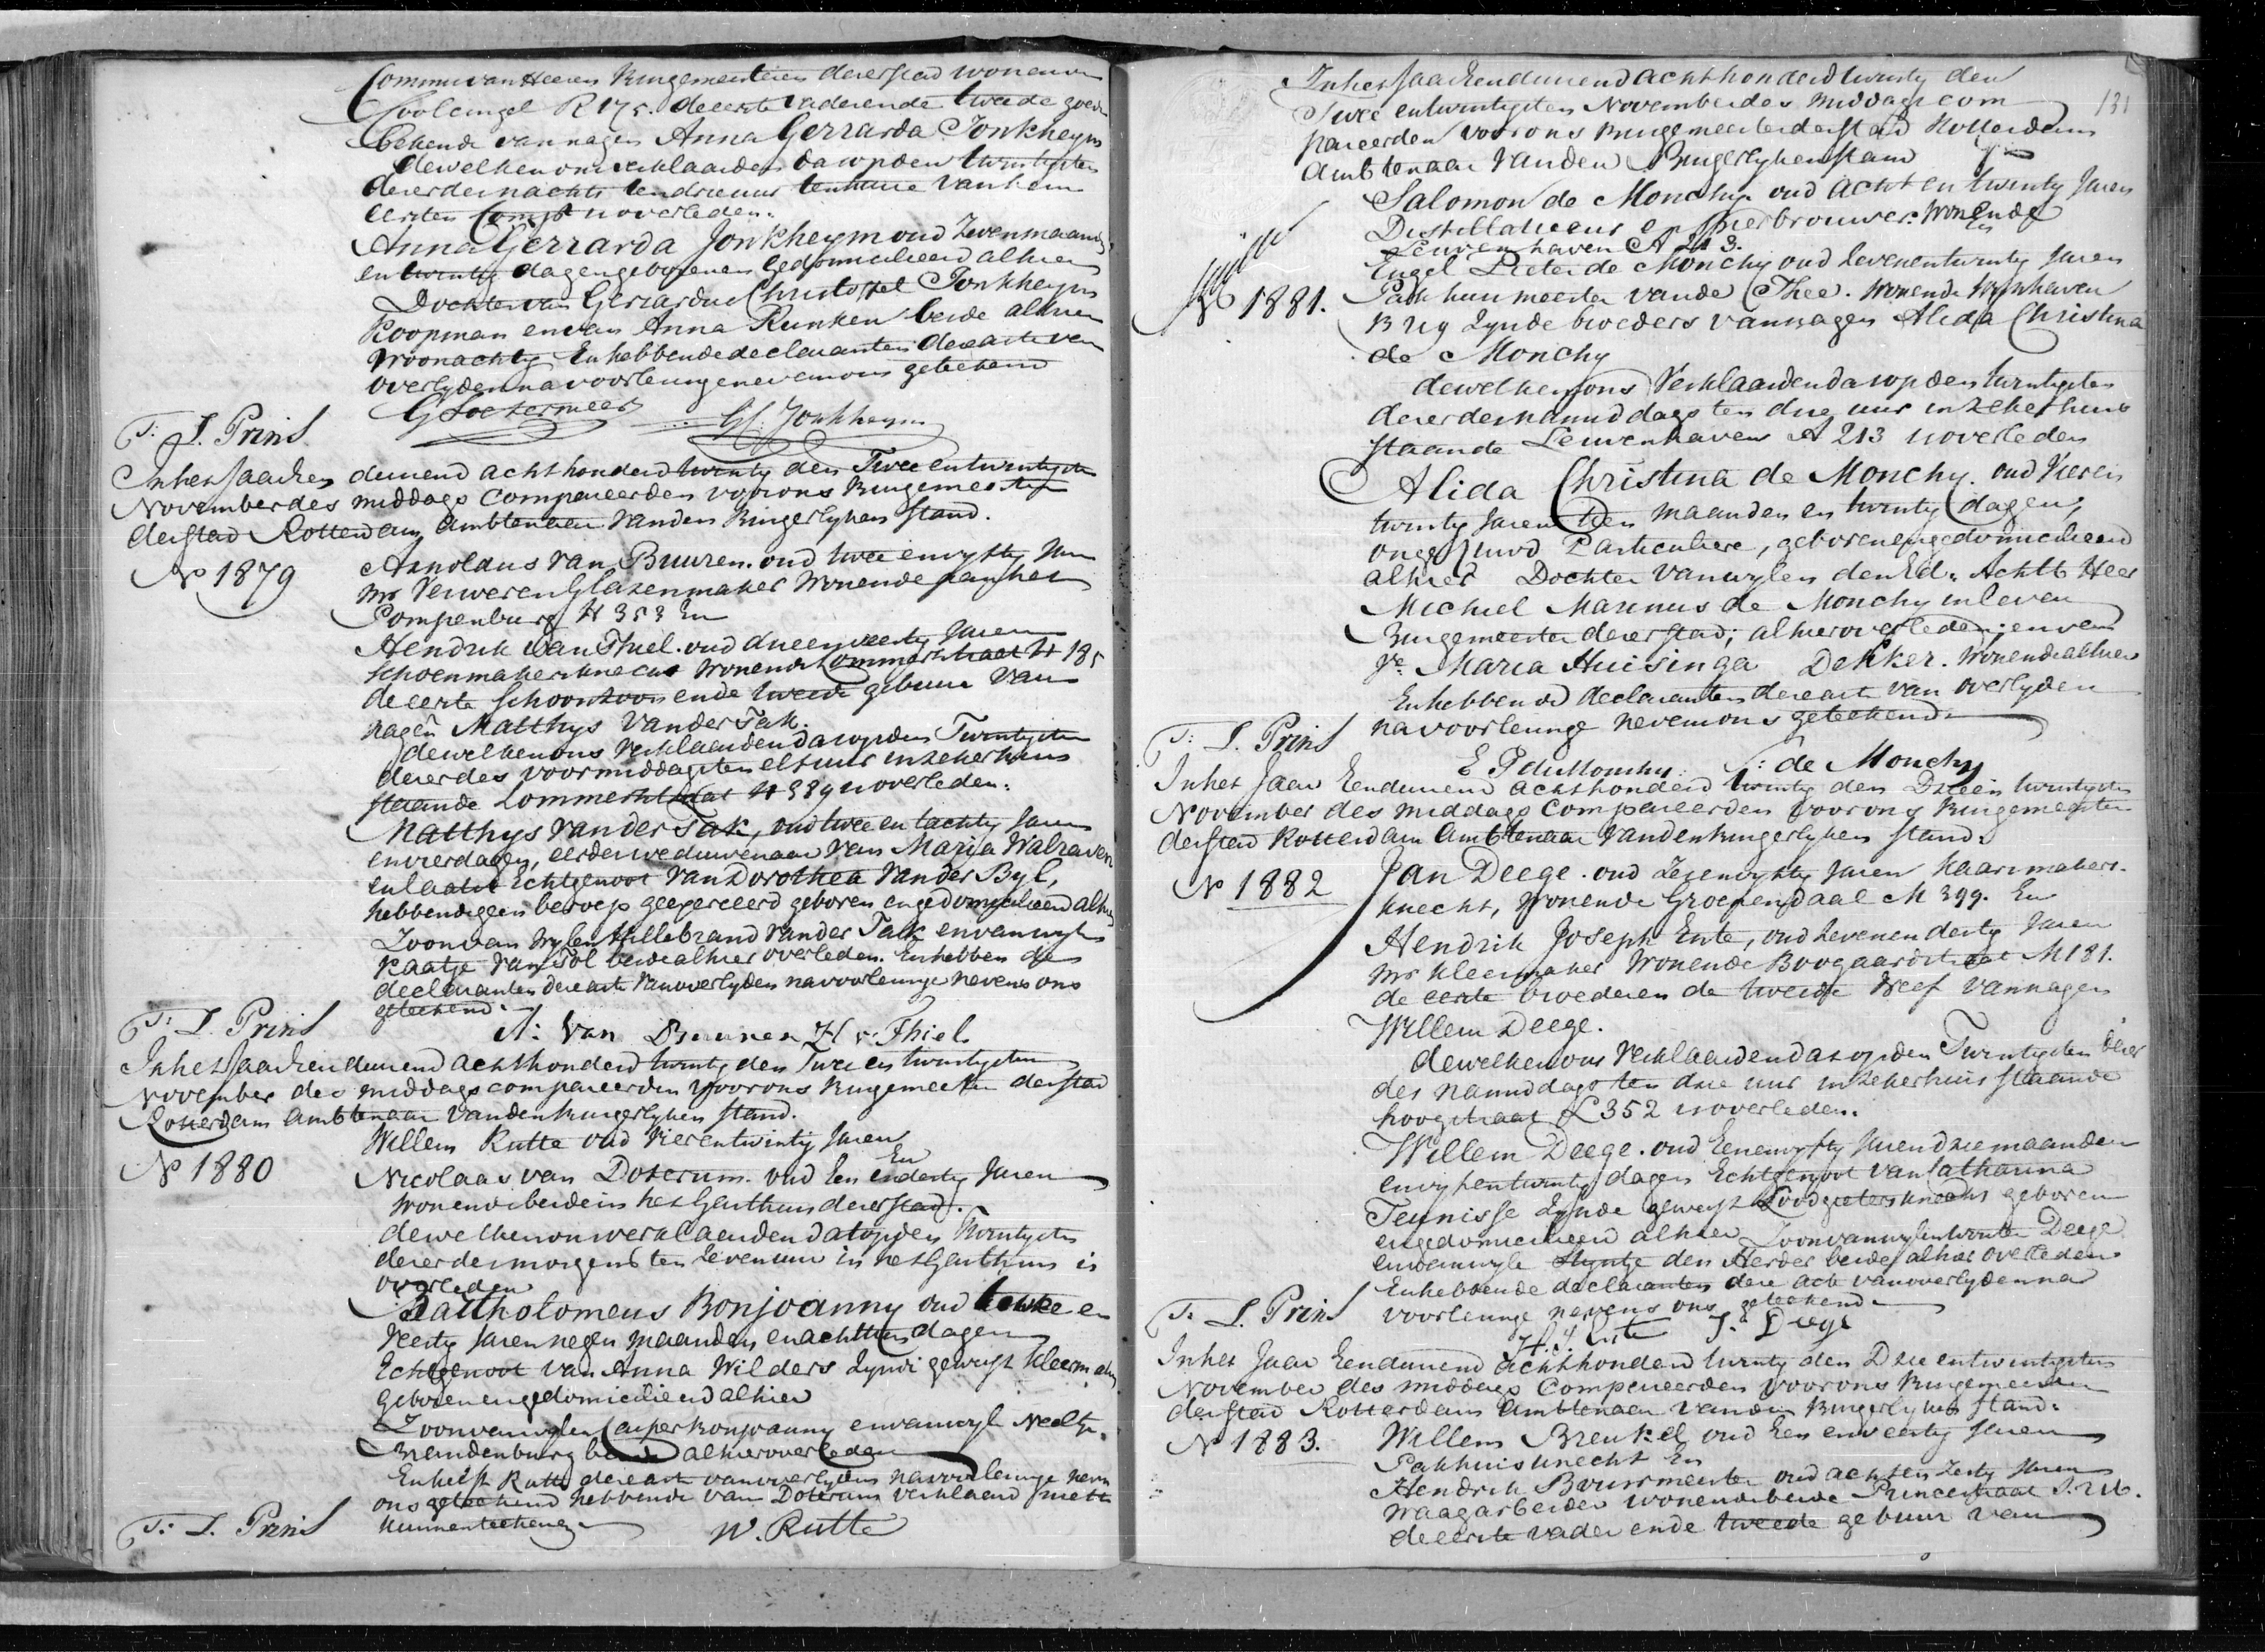 Commies van Heeren Burgemeesteren dezer stad wonende
Coolcingel R 175. de eerste vader ende tweede goede
bekende van nagen Anna Gerrarda Jonkheym
dewelken ons verklaarden dat op den twintigsten
dezer des nachts ten drie uur ten huize van hem
eersten Compt is overleden.
Anna Gerrarda Jonkheym oud Zeven maanden
en twintig dagen geboren en gedomicilieerd alhier
Dochter van Gerrardus Christoffel Jonkheym
Koopman en van Anna Runken beide alhier
woonachtig En hebbende declaranten deze acte van
overlyden na voorlezinge nevens ons getekend
G Soetermeer G.C. Jonkheym
T: L. Prins
In het Jaar Een duizend acht honderd twintig den Twee en twintigsten
November des middags Compareerden voor ons Burgemeester
der stad Rotterdam Ambtenaar van den Burgerlyken stand.
No 1879
Arnoldus van Buuren. oud twee en vyftig Jaren
Mr Verwer en Glazenmaker Wonende aan het
Pompenburg H 353 En
Hendrik van Thiel. oud drie en veertig Jaren
Schoenmakersknecht Wonende Lommertstraat H 185
de eerste Schoonzoon ende tweede gebuur van
nagen Matthys van der Tak.
dewelken ons verklaarden dat op den Twintigsten
dezer des voormiddags ten elf uur in zeker huis
staande Lommertstraat H 389 is overleden.
Matthys van der Tak, oud twee en tachtig Jaren
en vier dagen, eerder weduwenaar van Marija Walraven
en laatst Echtgenoot van Dorothea van der Byl,
hebbende geen beroep geexerceerd geboren en gedomicilieerd alhier
Zoon van Wylen Hillebrand van der Tak en van wylen
Kaatje van Tol beide alhier overleden. En hebben de
declaranten deze acte van overlyden na voorlezinge nevens ons
getekend.
T: L. Prins
A: Van Buuren H v: Thiel
In het Jaar Een duizend acht honderd twintig den Twee en twintigsten
November des middags compareerden voor ons Burgemeester der stad
Rotterdam Ambtenaar van den Burgerlyken stand.
Willem Rutte oud Vier en twintig Jaren
En
No 1880
Nicolaas van Doterum. oud Een en dertig Jaren
wonende beide in het Gasthuis dezer stad.
dewelken ons verklaarden dat op den Twintigsten
dezer des morgens ten Zeven uur in het Gasthuis is
overleden
Bartholomeus Bonjoanny oud twee en
Veertig Jaren negen maanden en achttien dagen
Echtgenoot van Anna Wilders Zynde geweest kleermaker
geboren en gedomicilieerd alhier
Zoon van wylen Casper Bonjoanny en van wyle Neeltje
Brandenburg beide alhier overleden
En heeft Rutte deze acte van overlyden na voorlezinge nevens
ons getekend hebbende van Doterum verklaard niet te
kunnen tekenen
T: L. Prins
W. Rutte
131
In het Jaar Een duizend acht honderd twintig den
Twee en twintigsten November des middags com
pareerden voor ons Burgemeester der stad Rotterdam
Ambtenaar van den Burgerlyken stand
Salomon de Monchy oud acht en twintig Jaren
Distillateur en Bierbrouwer. Wonende
Leuvenhaven A 213. En
Engel Pieter de Monchy oud Zeven en twintig Jaren
No 1881.
Pakhuismeester van de Thee. Wonende Wynhaven
B 119 Zynde broeders van nagen Alida Christina
de Monchy
dewelken ons Verklaarden dat op den twintigsten
dezer des namiddags ten drie uur in zeker huis
staande Leuvenhaven A 213 is overleden
Alida Christina de Monchy. oud Vier en
twintig Jaren Tien maanden en twintig dagen,
ongehuwd Particuliere, geboren en gedomicilieerd
alhier Dochter van wylen den Ed. Achtb Heer
Michiel Marinus de Monchy in leven
Burgemeester dezer stad, alhier overleden; en van
Ve Maria Huisinga Dekker. Wonende alhier
En hebbende declaranten deze acte van overlyden
na voorlezinge nevens ons getekend.
T: L. Prins
E P de Monchy S: de Monchy
In het Jaar Een duizend acht honderd twintig den Drie en twintigsten
November des middags Compareerden voor ons Burgemeester
der stad Rotterdam Ambtenaar van den Burgerlyken stand.
No 1882
Jan Deege. oud Zes en vyftig Jaren Kaarsmakers-
knecht, Wonende Groenendaal M 399. En
Hendrik Joseph Ente, oud Zeven en dertig Jaren
Mr Kleermaker Wonende Boogaardstraat M 181.
de eerste broeder en de tweede Neef van nagen
Willem Deege.
dewelken ons Verklaarden dat op den Twintigsten dezer
des namiddags ten drie uur in zeker huis staande
hoogstraat L 352 is overleden.
Willem Deege. oud Een en vyftig Jaren drie maanden
en vyf en twintig dagen Echtgenoot van Catharina
Teunisse Zynde geweest Loodgietersknecht geboren
en gedomicilieerd alhier Zoon van wylen Wouter Deege
en van wyle Styntje den Herder beide alhier overleden
En hebbende declaranten deze acte van overlyden na
voorlezinge nevens ons getekend
T: L. Prins
H. J. Ente J. Deege
In het Jaar Een duizend acht honderd twintig den Drie en twintigsten
November des middags Compareerden voor ons Burgemeester
der stad Rotterdam Ambtenaar van den Burgerlyken stand.
No 1883.
Willem Breukel oud Een en veertig Jaren
Pakhuisknecht En
Hendrik Buurmeester oud acht en Zestig Jaren
Waagarbeider wonende beide Princestraat
de eerste vader ende tweede gebuur van